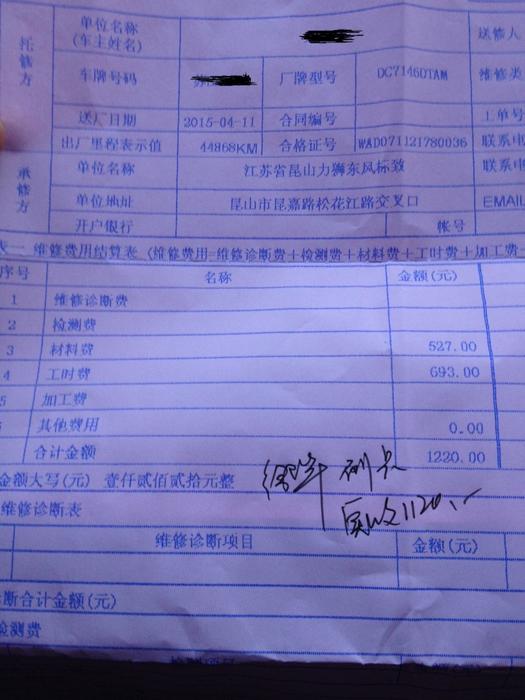 托修方
单位名称
(车主姓名)
送修人
车牌号码
厂牌型号
DC7146DTAM
维修类
送厂日期
2015-04-11
合同编号
工单号
出厂里程表示值
44868KM
合格证号
WAD071121780036
联系电
承修方
单位名称
江苏省昆山力狮东风标致
联系电
单位地址
昆山市昆嘉路松花江路交叉口
EMAIL
开户银行
帐号
表一 维修费用结算表 (维修费用=维修诊断费+检测费+材料费+工时费+加工费
序号
名称
金额(元)
1
维修诊断费
2
检测费
3
材料费
527.00
4
工时费
693.00
5
加工费
其他费用
0.00
合计金额
1220.00
金额大写(元) 壹仟贰佰贰拾元整
实收1120
维修诊断表
维修诊断项目
金额(元)
诊断合计金额(元)
检测费